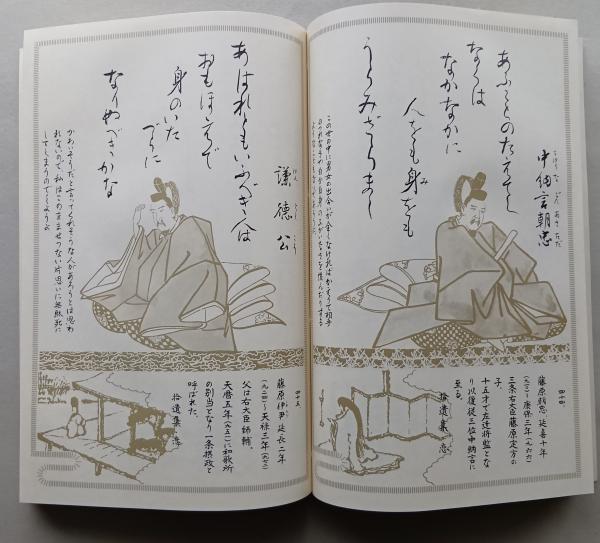 あふことのたえてし
なくは
なかなかに
人をも身をも
うらみざらまし
中納言朝忠
ちゅう な ごん あさ ただ
この世の中に男女の出会いが全くなければかえって相手
四十四
藤原朝忠、延喜十年
(九一〇)〜康保三年(九六六)
三条右大臣藤原定方の
子。
十五才で左近将監とな
り以後従三位中納言に
至る。
拾遺集 恋
あはれともいふべき人は
おもほえで
身のいた
づらに
なりぬべきかな
謙徳公
けん とく こう
かわいそうだと言ってくれそうな人があろうとは思わ
れないので、私はこのまませつない片思いに無駄死に
してしまうのでしょうよ
四十五
藤原伊尹 延長二年
(九二四)〜天禄三年(九七二)
父は右大臣師輔。
天暦五年(九五一)に和歌所
の別当となり一条摂政と
呼ばれた。
拾遺集 恋